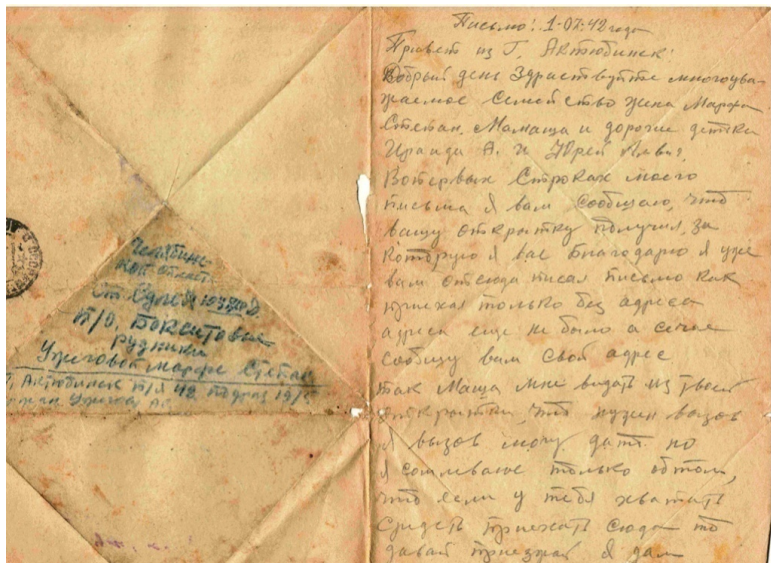 Челябинс
кой област
Ст. Сулея Юужд
П/О, Бокситовые
рудники
Ужеговой Марфе Степан
Актюбинск П/Я 42 подраз 19/5
Письмо! 1-07-42 года
Привет из Г. Актюбинск!
Добрый день Здраствуйте многоува-
жаемое Семейство жена Марфа
Степан, Мамаша и дорогие детки
Ираида А. и Юрей
Вопервых Строках моего
письма я вам сообщаю, что
вашу открытку получил, за
которую я вас благодарю я уже
вам отсюда писал письмо как
приехал только без адреса
адреса еще не было а сечас
сообщу вам свой адрес
так Маша мне видать из твоей
открытки, что нужен вызов
я вызов могу дать но
я сомневаюс только обтом,
что если у тебя хватить
средств приехать сюда то
давай приезжай я дам